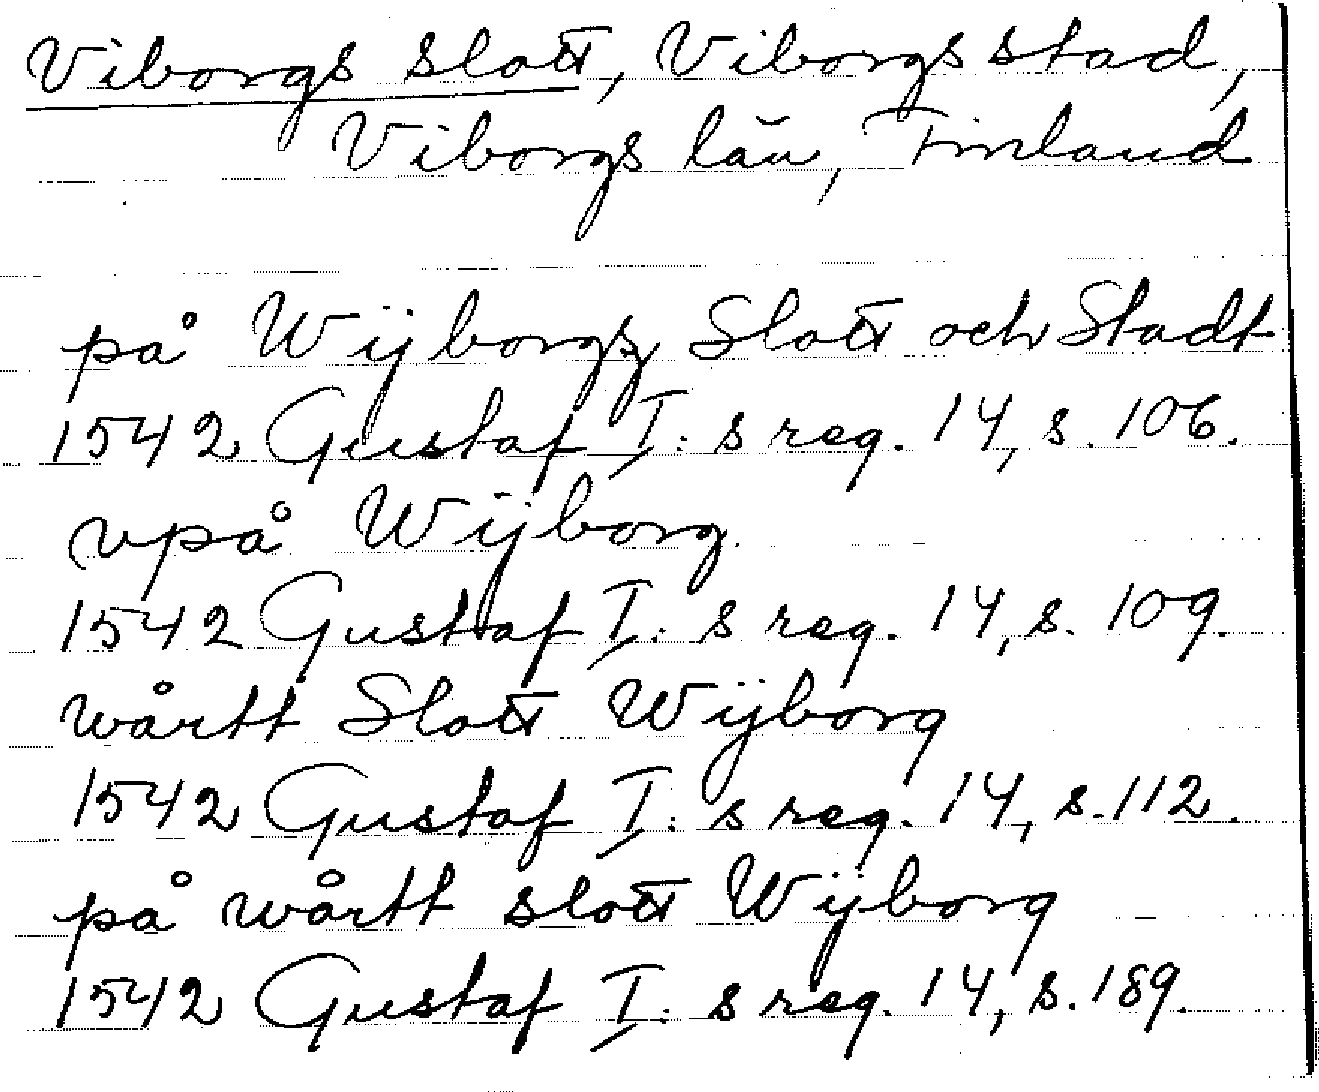 Viborgs slott, Viborgs stad,
Viborgs län, Finland
på Wijborgz Slott och Stadt
1542 Gustaf I:s reg. 14, s. 106.
vpå Wijborg.
1542 Gustaf I:s reg. 14, s. 109.
wårtt Slott Wijborg
1542 Gustaf I:s reg. 14, s. 112.
på wårtt slott Wijborg
1542 Gustaf I:s reg. 14, s. 189.